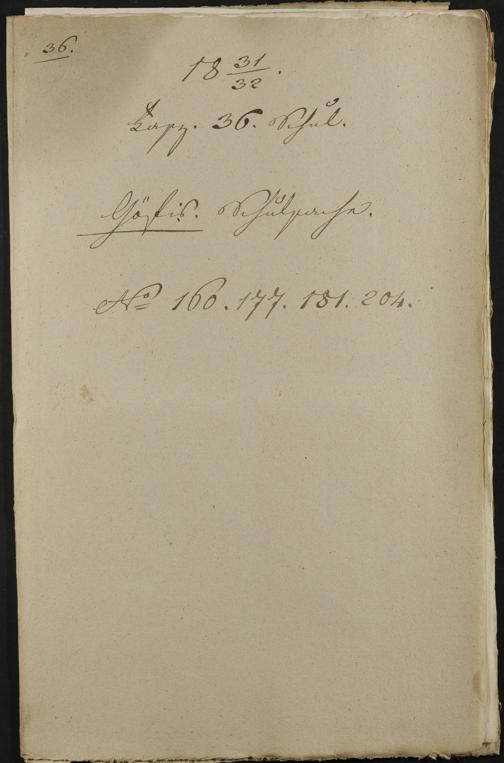 36.
18 31/32.
Fasz. 36. Schul.
Göfis. Schulsache.
No 160. 177. 181. 204.